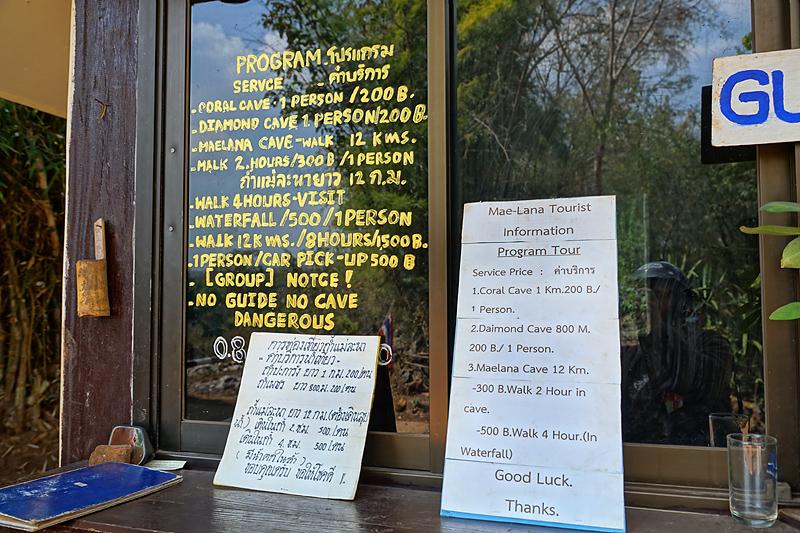 PROGRAM โปรแกรม
SERVCE - ค่าบริการ
. CORAL CAVE . 1 PERSON /200 B.
. DIAMOND CAVE 1 PERSON/200 B.
. MAELANA CAVE-WALK 12 KMS.
. MALK 2. HOURS/300 B /1 PERSON
ถ้ำแม่ละนายาว 12 ก.ม.
. WALK 4 HOURS-VISIT
. WATERFALL /500 /1 PERSON
. WALK 12 K ms. /8 HOURS/1500 B.
. 1 PERSON/CAR PICK-UP 500 B
- [GROUP] NOTCE !
. NO GUIDE NO CAVE
DANGEROUS
08
การท่องเที่ยวถ้ำแม่ละนา
- ค่าบริการนำเที่ยว -
ถ้ำปะการัง ยาว 1 ก.ม. 200/คน
ถ้ำเพชร ยาว 800 ม. 200/คน
ถ้ำแม่ละนา ยาว 12 ก.ม.
เดินในถ้ำ 2 ชม. 300./คน
เดินในถ้ำ 4. ชม. 500/คน
ขอบคุณครับ ขอให้โชคดี
Mae-Lana Tourist
Information
Program Tour
Service Price : ค่าบริการ
1.Coral Cave 1 Km.200 B./
1 Person.
2.Daimond Cave 800 M.
200 B./ 1 Person.
3.Maelana Cave 12 Km.
-300 B.Walk 2 Hour in
cave.
-500 B.Walk 4 Hour.(In
Waterfall)
Good Luck.
Thanks.
GU